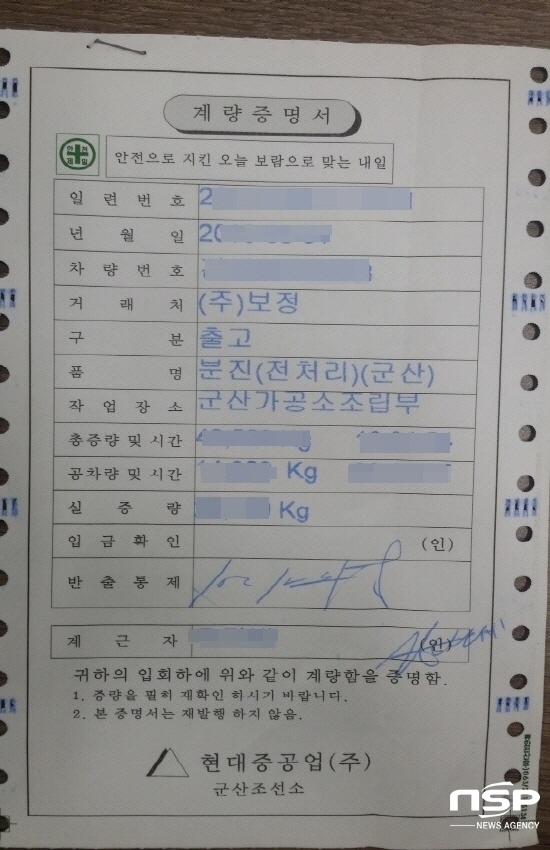 계량증명서
안전제일
안전으로 지킨 오늘 보람으로 맞는 내일
일련번호 2
년월일 20
차량번호
거래처 (주)보정
구분 출고
품명 분진(전처리)(군산)
작업장소 군산가공소조립부
총중량 및 시간
공차량 및 시간 Kg
실중량 Kg
입금확인 (인)
반출통제
계근자 (인)
귀하의 입회하에 위와 같이 계량함을 증명함.
1. 중량을 필히 재확인 하시기 바랍니다.
2. 본 증명서는 재발행 하지 않음.
현대중공업(주)
군산조선소
nsp
NEWS AGENCY